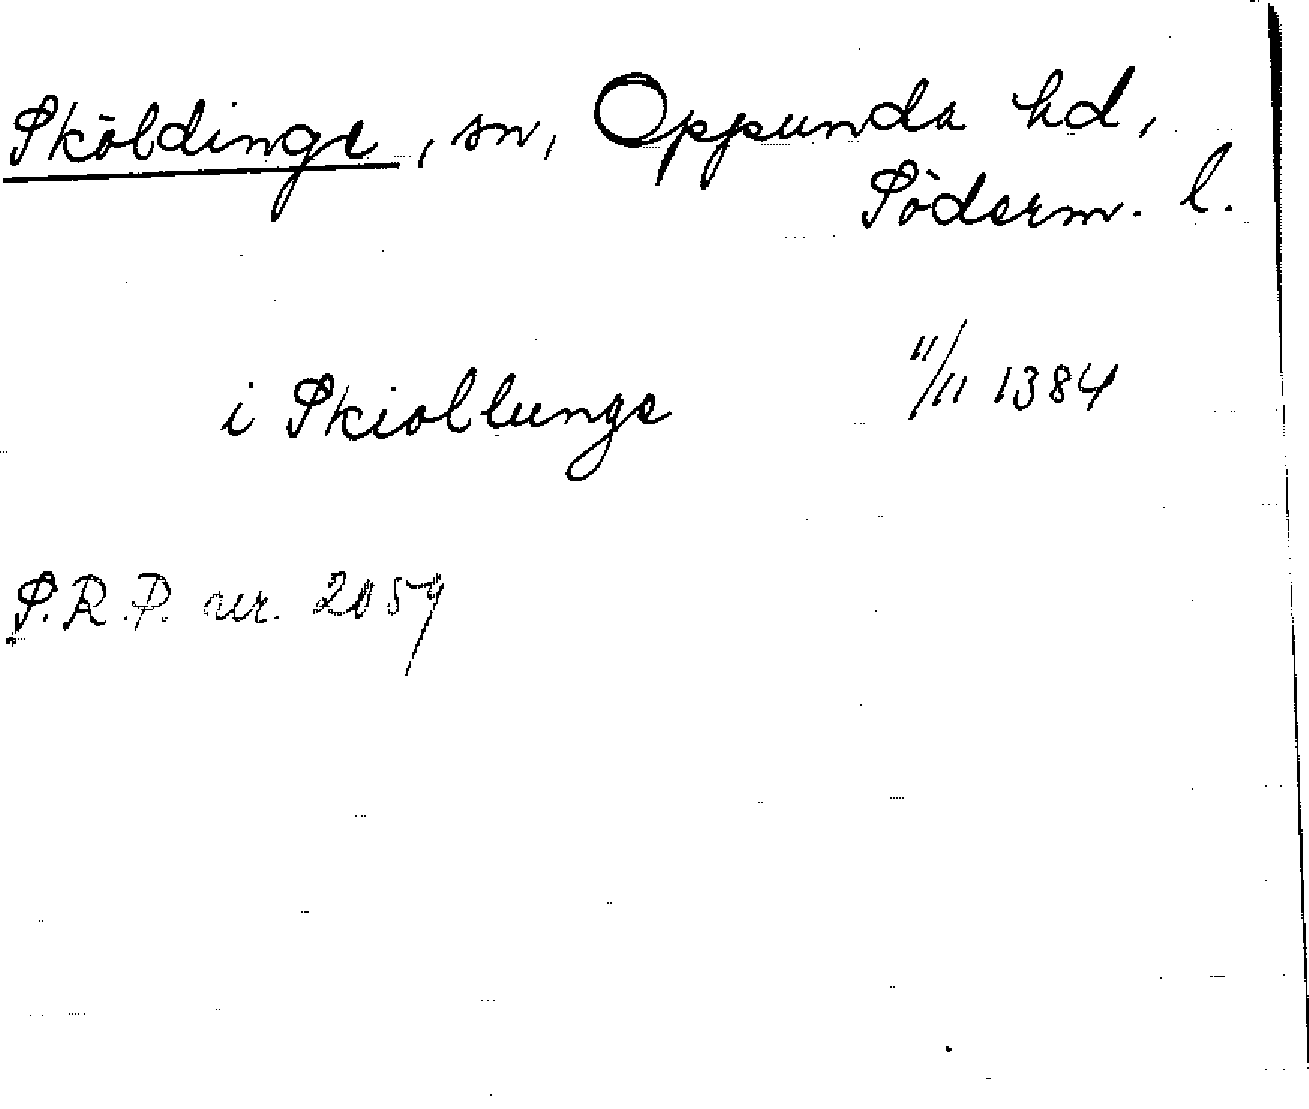 Sköldinge, sn, Oppunda hd,
Söderm. l.
i Skiollunge 11/11 1384
S.R.P. nr. 2059